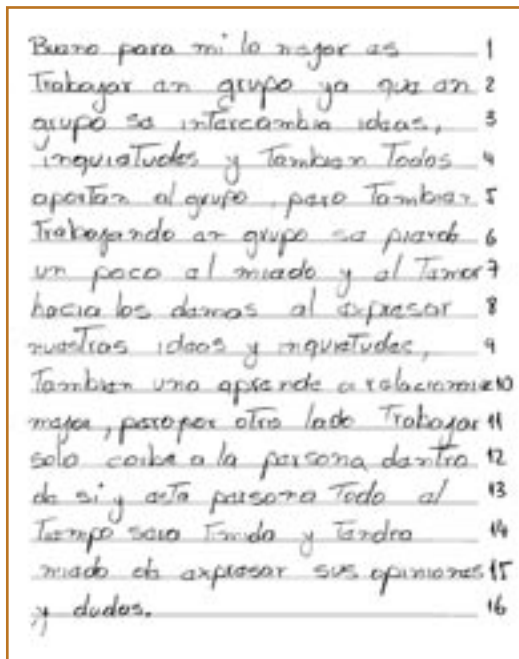 Bueno para mi lo mejor es 1
Trabajar en grupo ya que en 2
grupo se intercambia ideas, 3
inquietudes y Tambien Todos 4
aportan al grupo, pero Tambien 5
Trabajando en grupo se pierde 6
un poco el miedo y el Temor 7
hacia los demas al expresar 8
nuestras ideas y inquietudes, 9
Tambien uno aprende a relacionarse 10
mejor, pero por otro lado Trabajar 11
solo a la persona dentro 12
de si y esta persona Todo el 13
Tiempo sera Timida y Tendra 14
miedo de expresar sus opiniones 15
y dudas. 16